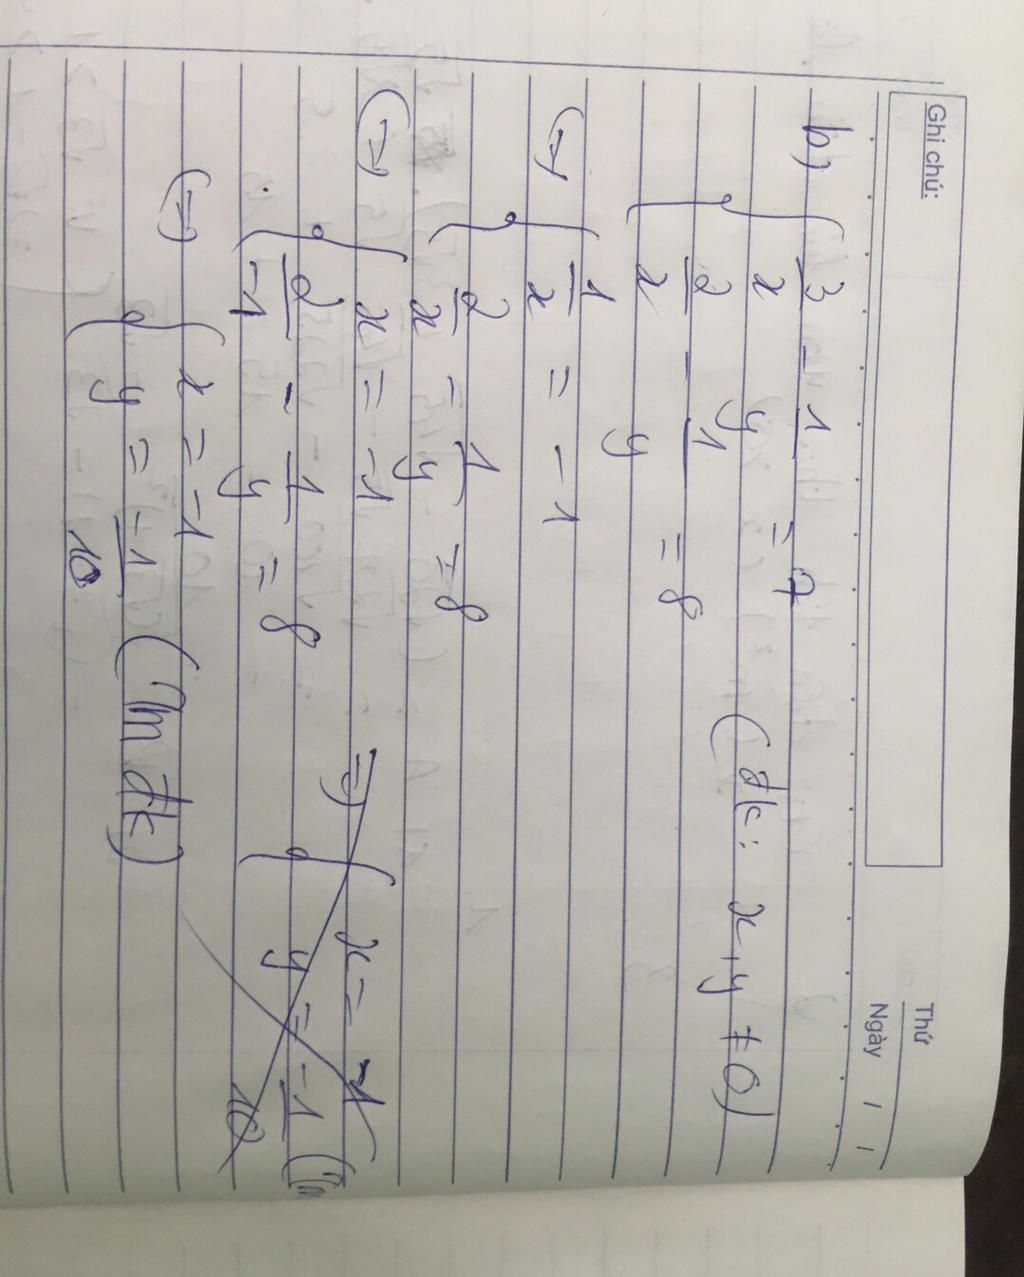 Ghi chú:
Thứ
Ngày / /
b) { 3/x - 1/y = 7
2/x - 1/y = 8 (đk: x, y ≠ 0)
(=) { 1/x = -1
2/x - 1/y = 8
(=) { x = -1
2/-1 - 1/y = 8
=) { x = -1
y = -1/10 (tm
(=) { x = -1
y = -1/10 (tm đk)